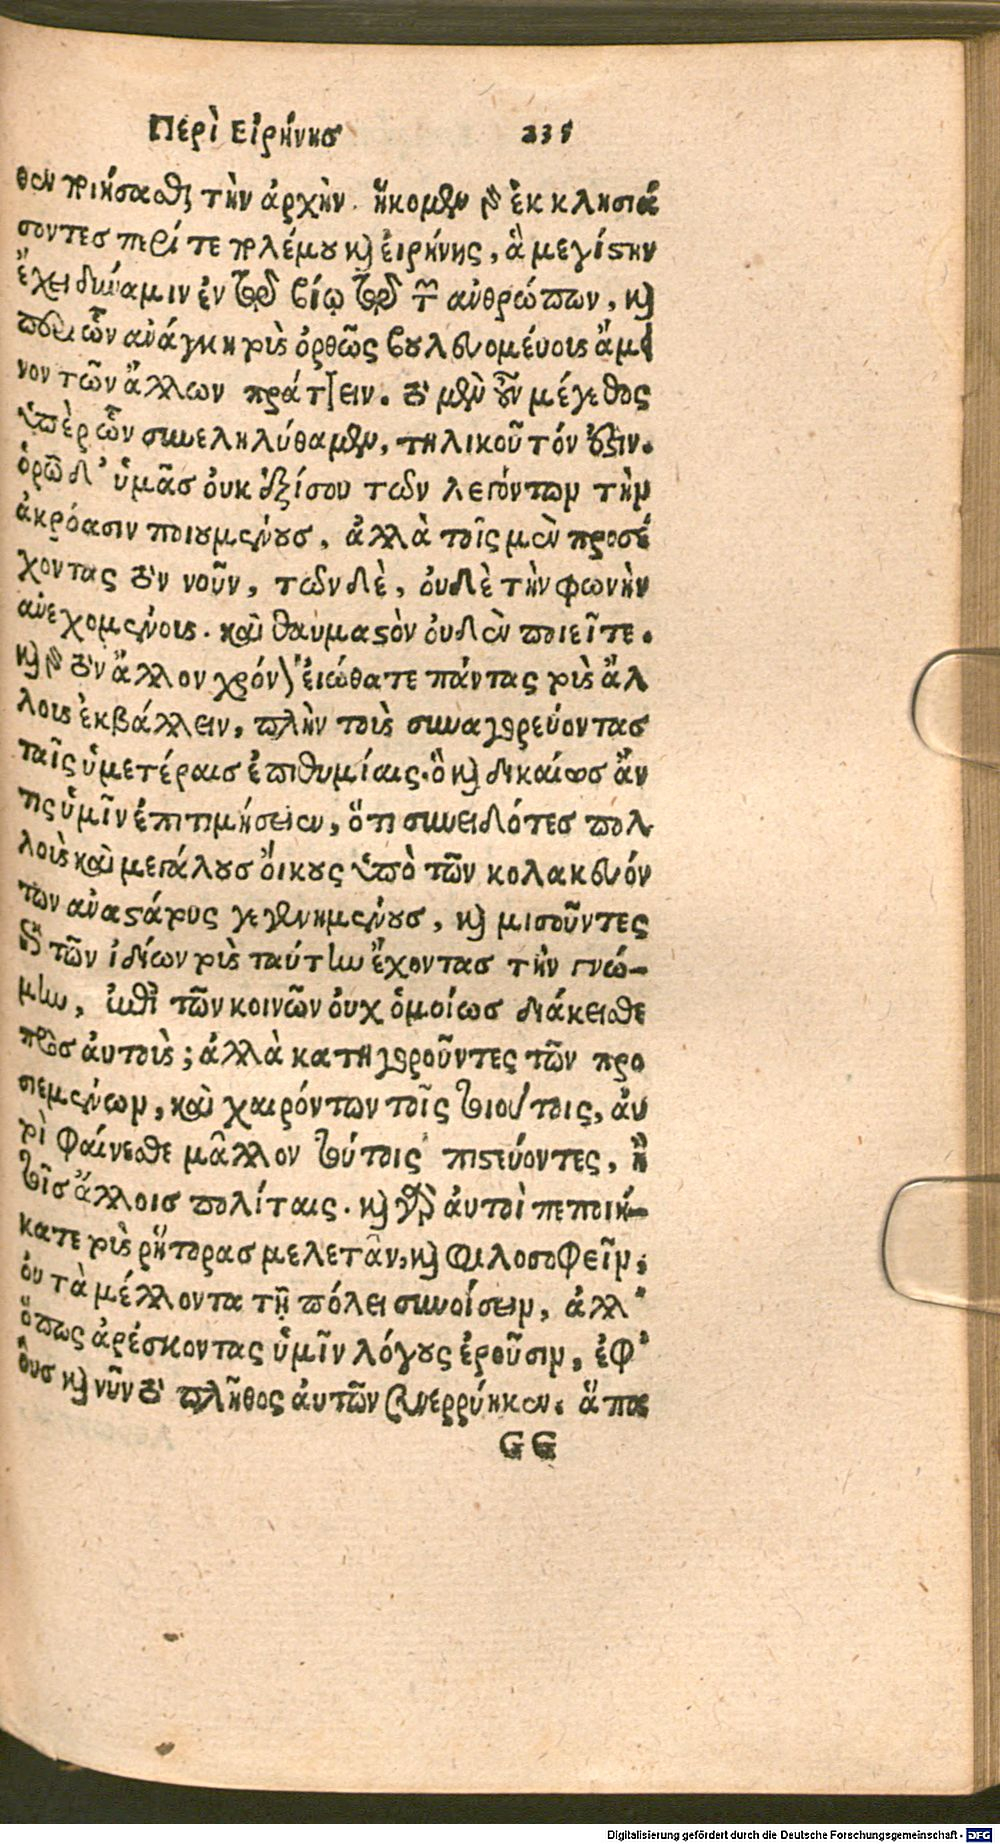 Περὶ Εἰρήνησ 235
θεν ποιήσασθαι τὴν ἀρχὴν. ἥκομεν γὰρ ἐκκλησιά
σοντεσ περί τε πολέμου καὶ ἐιρήνης, ἃ μεγίστην
ἔχει δύναμιν ἐν τῷ βίῳ τῷ τῶν ἀνθρώπων, καὶ
περὶ ὧν ἀνάγκη τοὺς ὀρθῶς βουλευομένους ἄμει
νον τῶν ἄλλων πράττειν. τὸ μὲν οὖν μέγεθος
ὑπὲρ ὧν συνεληλύθαμεν, τηλικοῦτόν ἐστιν.
ὁρῶ δ' ὑμᾶσ ὀυκ ἐξίσου τῶν λεγόντων τὴν
ἀκρόασιν ποιουμένουσ, ἀλλὰ τοῖς μὲν προσέ
χοντας τὸν νοῦν, τῶν δὲ, ὀυδὲ τὴν φωνὴν
ἀνεχομένους. καὶ θαυμαστὸν ὀυδὲν ποιεῖτε.
καὶ γὰρ τὸν ἄλλον χρόνον ἐιώθατε πάντας τοὺς ἄλ
λους ἐκβάλλειν, πλὴν τοὺς συναγορεύοντασ
ταῖς ὑμετέραισ ἐπιθυμίαις. ὃ καὶ δικαίωσ ἄν
τις ὑμῖν ἐπιτιμήσειεν, ὅτι συνειδότεσ πολ
λοὺς καὶ μεγάλουσ ὄικους ὑπὸ τῶν κολακευόν
των ἀναστάτους γεγενημένουσ, καὶ μισοῦντες
ἐπὶ τῶν ἰδίων τοὺς ταύτην ἔχοντασ τὴν γνώ-
μην, ἐπὶ τῶν κοινῶν ὀυχ ὁμοίωσ διάκεισθε
πρὸσ ἀυτοὺς; ἀλλὰ κατηγοροῦντες τῶν προ
σιεμένων, καὶ χαιρόντων τοῖς τοιούτοις, ἀυ
τοὶ φαίνεσθε μᾶλλον τούτοις πιστεύοντες, ἢ
τοῖσ ἄλλοισ πολίταις. καὶ γὰρ ἀυτοὶ πεποιή-
κατε τοὺς ῥήτορασ μελετᾶν, καὶ φιλοσοφεῖν,
ὀυ τὰ μέλλοντα τῇ πόλει συνοίσειν, ἀλλ'
ὅπως ἀρέσκοντας ὑμῖν λόγους ἐροῦσιν, ἐφ'
ὅυσ καὶ νῦν τὸ πλῆθος ἀυτῶν συνερρύηκεν. ἅπα
GG
Digitalisierung gefördert durch die Deutsche Forschungsgemeinschaft - DFG